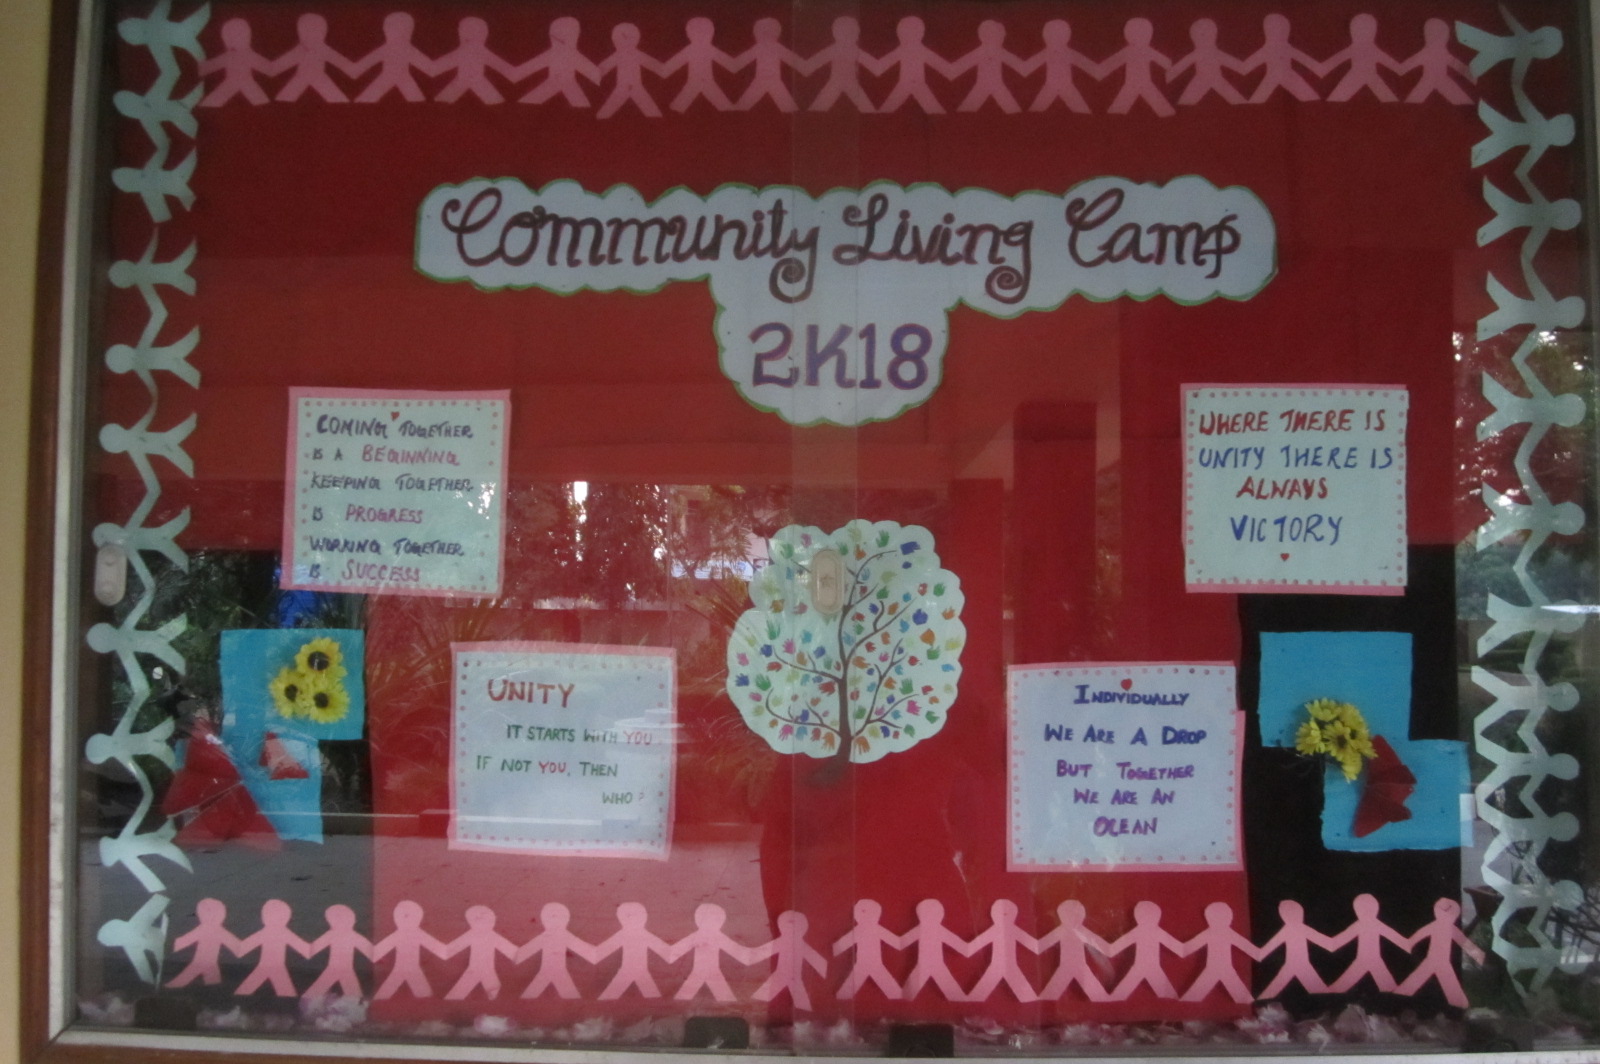 Community Living Camp
2K18
COMING TOGETHER
IS A BEGINNING
KEEPING TOGETHER
IS PROGRESS
WORKING TOGETHER
IS SUCCESS
WHERE THERE IS
UNITY THERE IS
ALWAYS
VICTORY
UNITY
IT STARTS WITH YOU
IF NOT YOU, THEN
WHO?
INDIVIDUALLY
WE ARE A DROP
BUT TOGETHER
WE ARE AN
OCEAN